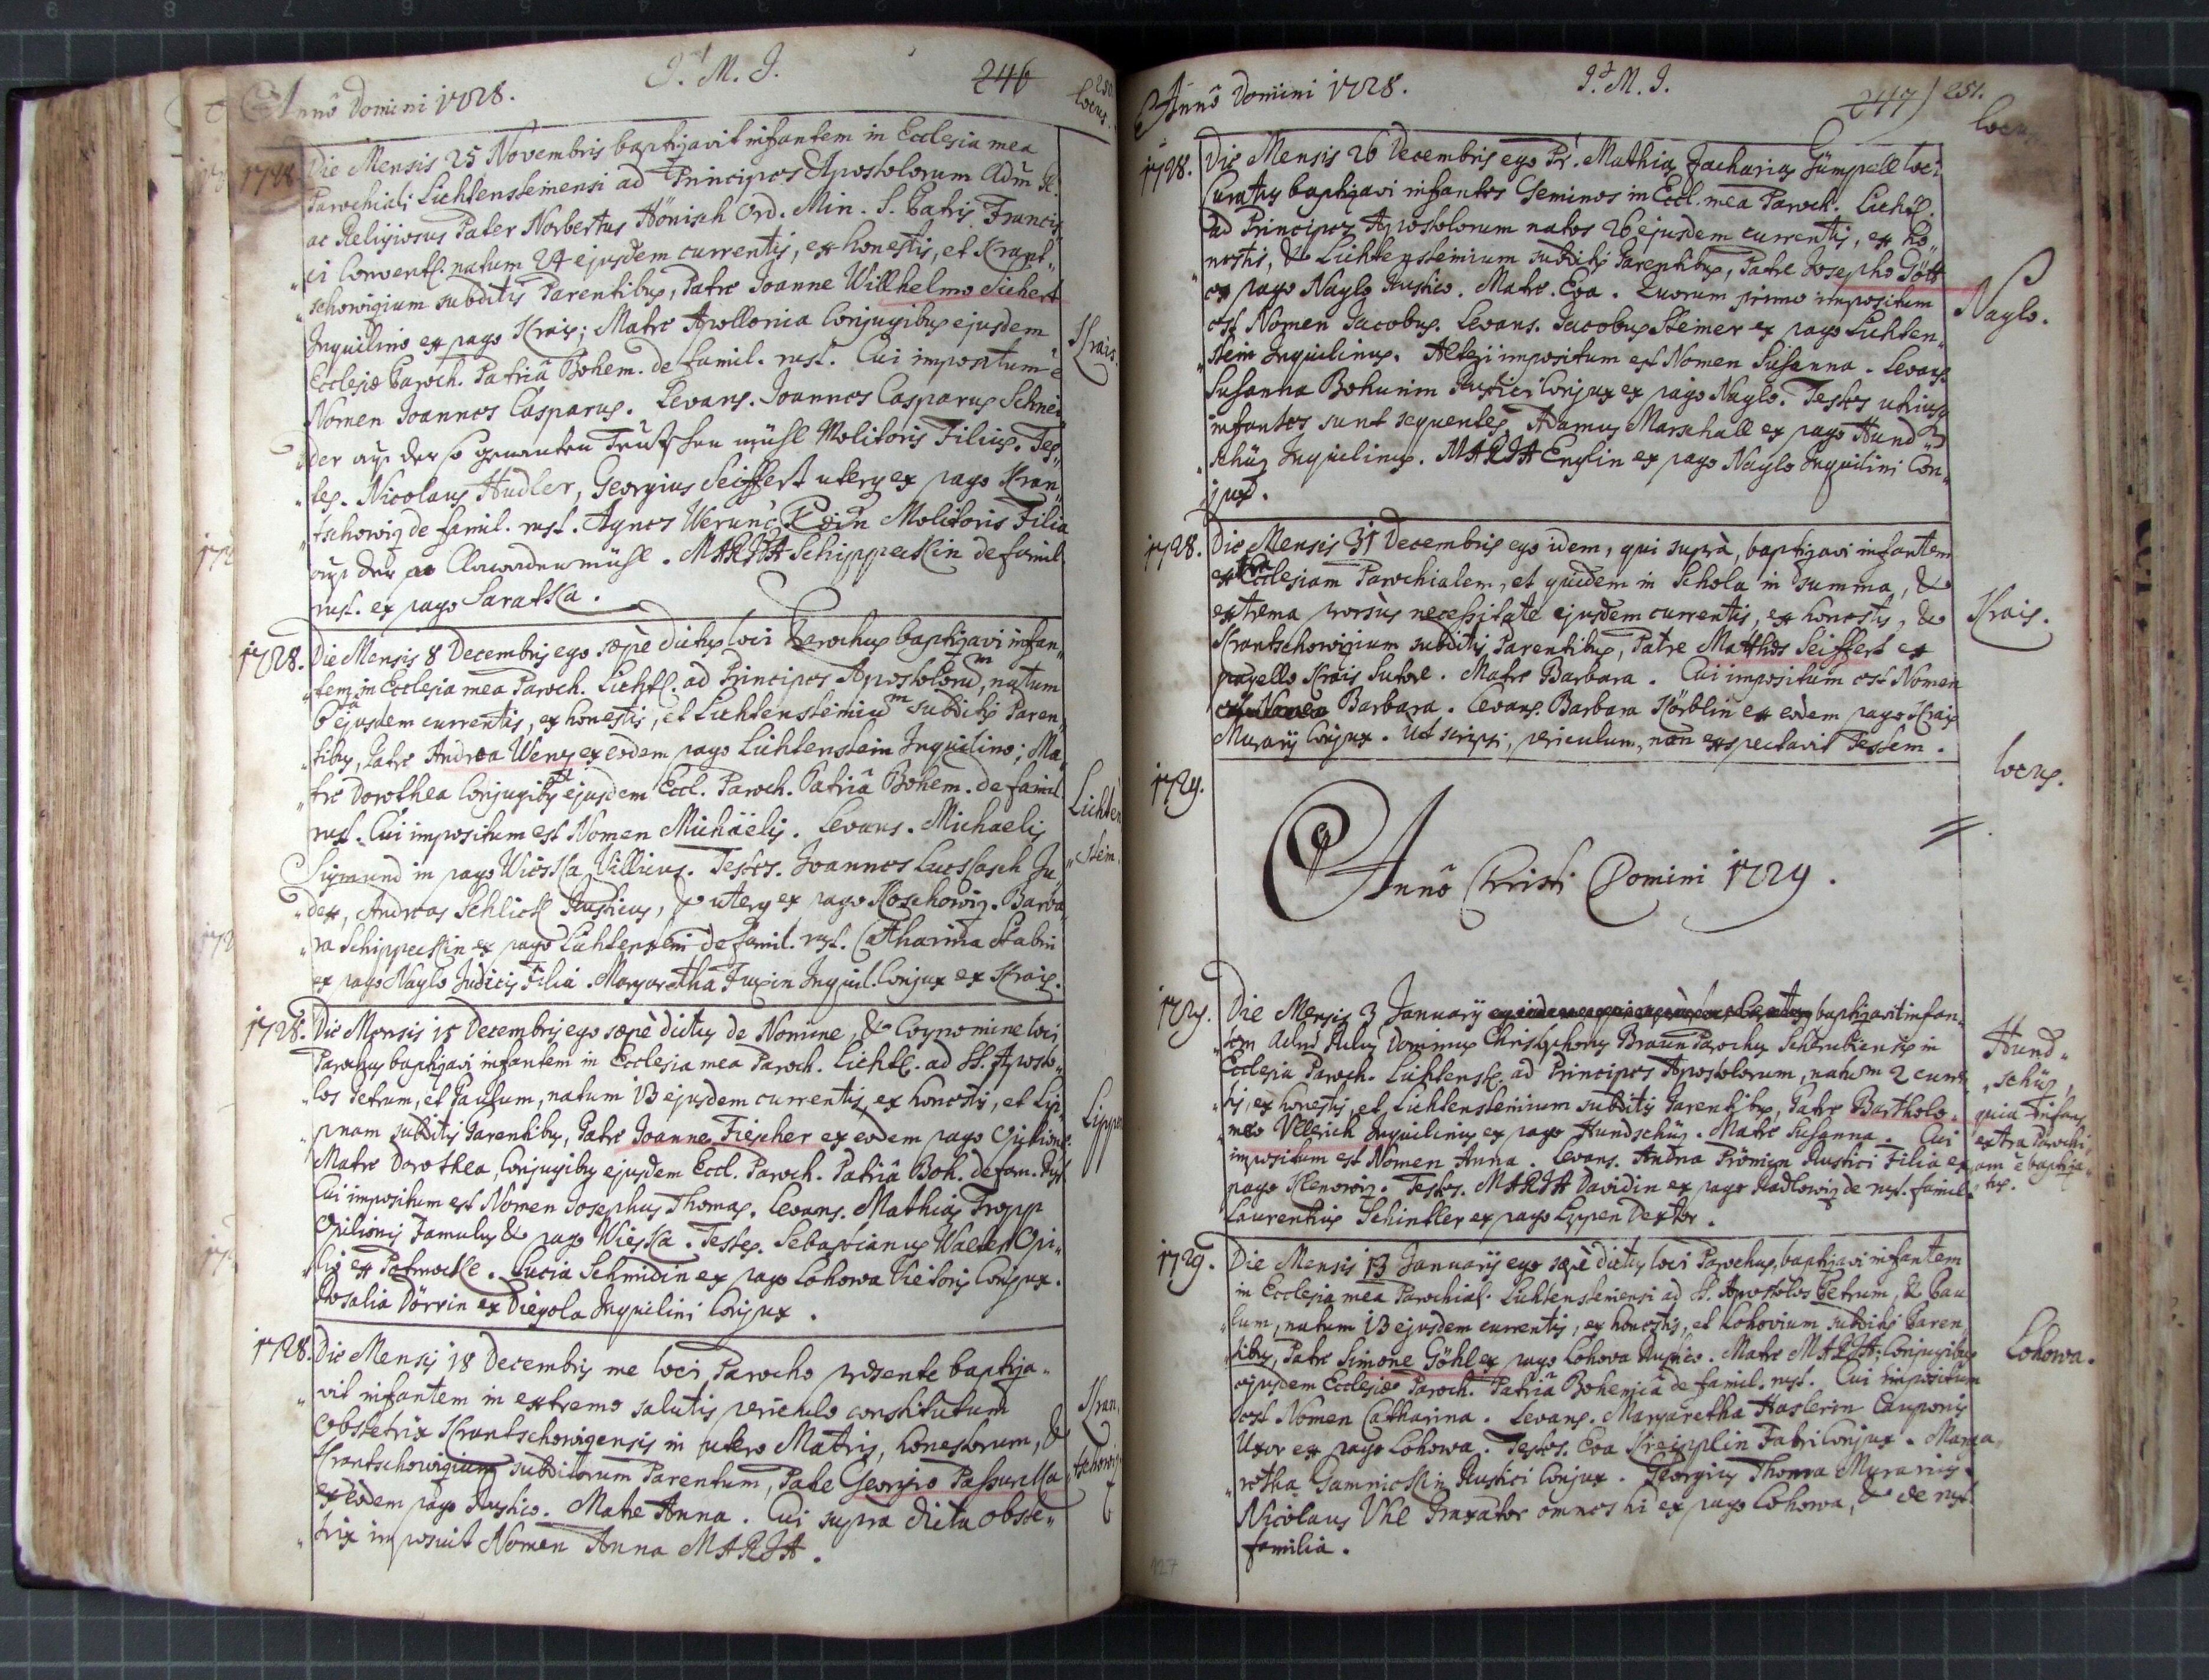 Annô Domini 1728.
J. M. J.
246
250
Locus.
1728
Die Mensis 25 Novembris baptizavit infantem in Ecclesia mea
Parochiali Lichtensteinensi ad Principes Apostolorum Adm. R.
ac Religiosus Pater Norbertus Hönisch Ord. Min. S. Patris Francis„
„ci Convent. natum 24 ejusdem currentis, ex honestis, et Krant„
„schowizium subditis Parentibus, Patre Joanne Willhelmo Sichert
Inquilino ex pago Krais; Matre Apollonia Conjugibus ejusdem
Ecclesiæ Paroch. Patriâ Bohem. de famil. rust. Cui impositum ē
Nomen Joannes Casparus. Levans. Joannes Casparus Schnei„
„der auß der so genanten mühl Molitoris Filius. Tes„
„tes. Nicolaus Hudler, Georgius Seiffert uterq ex pago Kran„
„tschowiz de famil. rust. Agnes Molitoris Filia
auß der MARIA Schippeckin de famil.
rust. ex pago Saratka.
Krais.
1728.
Die Mensis 8 Decembris ego sæpè dictus loci Parochus baptizavi infan„
„tem in Ecclesia mea Paroch. Lichtl. ad Principes Apostolorum, natum
6ta ejusdem currentis, ex honestis, et Lichtensteinium subditis Paren„
„tibus, Patre Andrea Wenz ex eodem pago Lichtenstein Inquilino; Ma„
„tre Dorothea Conjugibus ejusdem Eccl. Paroch. Patriâ Bohem. de famil.
rust. Cui impositum est Nomen Michaëlis. Levans. Michaelis
Sigmund in pago Wieska Villicus. Testes. Joannes Lucscasch Ju„
„dex, Andreas Schlick Rusticus, & uterq ex pago Koschowiz. Barba„
„ra Schippeckin ex pago Lichtenstein de famil. rust. Catharina Stabin
ex pago Naglo Judicis Filia. Margaretha Fuxin Inquil. Conjux ex Krais.
Lichten„
„stein.
1728.
Die Mensis 15 Decembris ego sæpè dictus de Nomine, & Cognomine loci
Parochus baptizavi infantem in Ecclesia mea Paroch. Lichtl. ad SS. Aposto„
„los Petrum, et Paulum, natum 13 ejusdem currentis, ex honestis, et Lip„
„pnam subditis Parentibus, Patre Joanne Fiescher ex eodem pago Opilione.
Matre Dorothea, Conjugibus ejusdem Eccl. Paroch. Patriâ Boh. de fam. Rust
Cui impositum est Nomen Josephus Thomas. Levans. Mathias Tropp
Opilionis Famulus & pago Wieska. Testes. Sebastianus Walter Opi„
„lio ex Potmockl. Lucia Schmidin ex pago Lohowa Vietoris Conjux.
Rosalia Dörrin ex Diegola Inquilini Conjux.
Lippen
1728.
Die Mensis 18 Decembris me loci Parocho præsente baptiza„
„vit infantem in extremo salutis periculo constitutum
Obstetrix Krantschowizensis in utero Matris, honestorum, &
Krantschowizium subditorum Parentum, Patre Georgio Passurka
ex eodem pago Rustico. Matre Anna. Cui supra dicta obste„
„trix imposuit Nomen Anna MARIA.
Kran„
„tschowiz
Annô Domini 1728.
J. M. J.
247
251.
Locus
1728.
Die Mensis 26 Decembris ego Pr. Mathias Zacharias Gümpell loci
Curatus baptizavi infantes Geminos in Eccl. mea Paroch. Lichtl.
ad Principes Apostolorum natos 26 ejusdem currentis, ex ho„
„nestis, & Lichtensteinium subditis Parentibus, Patre Josepho Gött
ex pago Naglo Rustico. Matre. Eva. Quorum primo impositum
est Nomen Jacobus. Levans. Jacobus Steiner ex pago Lichten„
„stein Inquilinus. Alteri impositum est Nomen Susanna. Levans.
Susanna Bohumin Rustici Conjux ex pago Naglo. Testes utriusq
infantes sunt sequentes, Adamus Marschall ex pago Hund„
„schüz Inquilinus. MARIA Englin ex pago Naglo Inquilini Con„
„jux.
Naglo.
1728.
Die Mensis 31 Decembris ego idem, qui suprà, baptizavi infantem
extra Ecclesiam Parochialem, et quidem in Schola in summa, &
extrema prorsùs necessitate ejusdem currentis, ex honestis, &
Krantschowizium subditis Parentibus, Patre Matthæo Seiffert ex
pagello Krais Sutore. Matre Barbara. Cui impositum est Nomen
Barbara. Levans. Barbara Körblin ex eodem pago Krais
Murarij Conjux. Ut scripsi, periculum, non exspectavit Testem.
Krais.
1729.
Locus.
Annô Christi Domini 1729.
1729.
Die Mensis 3 Januarij baptizavit infan„
„tem Adm Rudus Dominus Christophorus Braun Parochus Scherubiensis in
Ecclesia Paroch. Lichtenst. ad Principes Apostolorum, natum 2 curren„
„tis, ex honestis, et Lichtensteinium subditis Parentibus, Patre Bartholo„
„mæo Ullrich Inquilinus ex pago Hundschüz. Matre Susanna. Cui
impositum est Nomen Anna. Levans. Anna Prömin Rustici Filia ex
pago Klenowiz. Testes. MARIA Davidin ex pago Radlowiz de rust. famil.
Laurentius Schinkler ex pago Lippen Textor.
Hund„
„schüz,
quia Infans
extra Parochi„
am ē baptiza„
„tus.
1729.
Die Mensis 13 Januarij ego sæpè dictus loci Parochus, baptizavi infantem
in Ecclesia mea Parochiali Lichtensteinensi ad SS. Apostolos Petrum, & Pau„
„lum, natum 13 ejusdem currentis, ex honestis, et Lohovium subditis Paren„
„tibus, Patre Simone Göhl ex pago Lohova Rustico. Matre MARIA; Conjugibus
ejusdem Ecclesiæ Paroch. Patriâ Bohemicâ de famil. rust. Cui impositum
est Nomen Catharina. Levans. Margaretha Haslerin Cauponis
Uxor ex pago Lohowa. Testes. Eva Kreisplin Fabri Conjux. Marga„
„retha Gamnickin Rustici Conjux. Georgius Thoma Murarius.
Nicolaus Uhl Braxator omnes hi ex pago Lohowa, & de rust.
familia.
Lohowa.
127